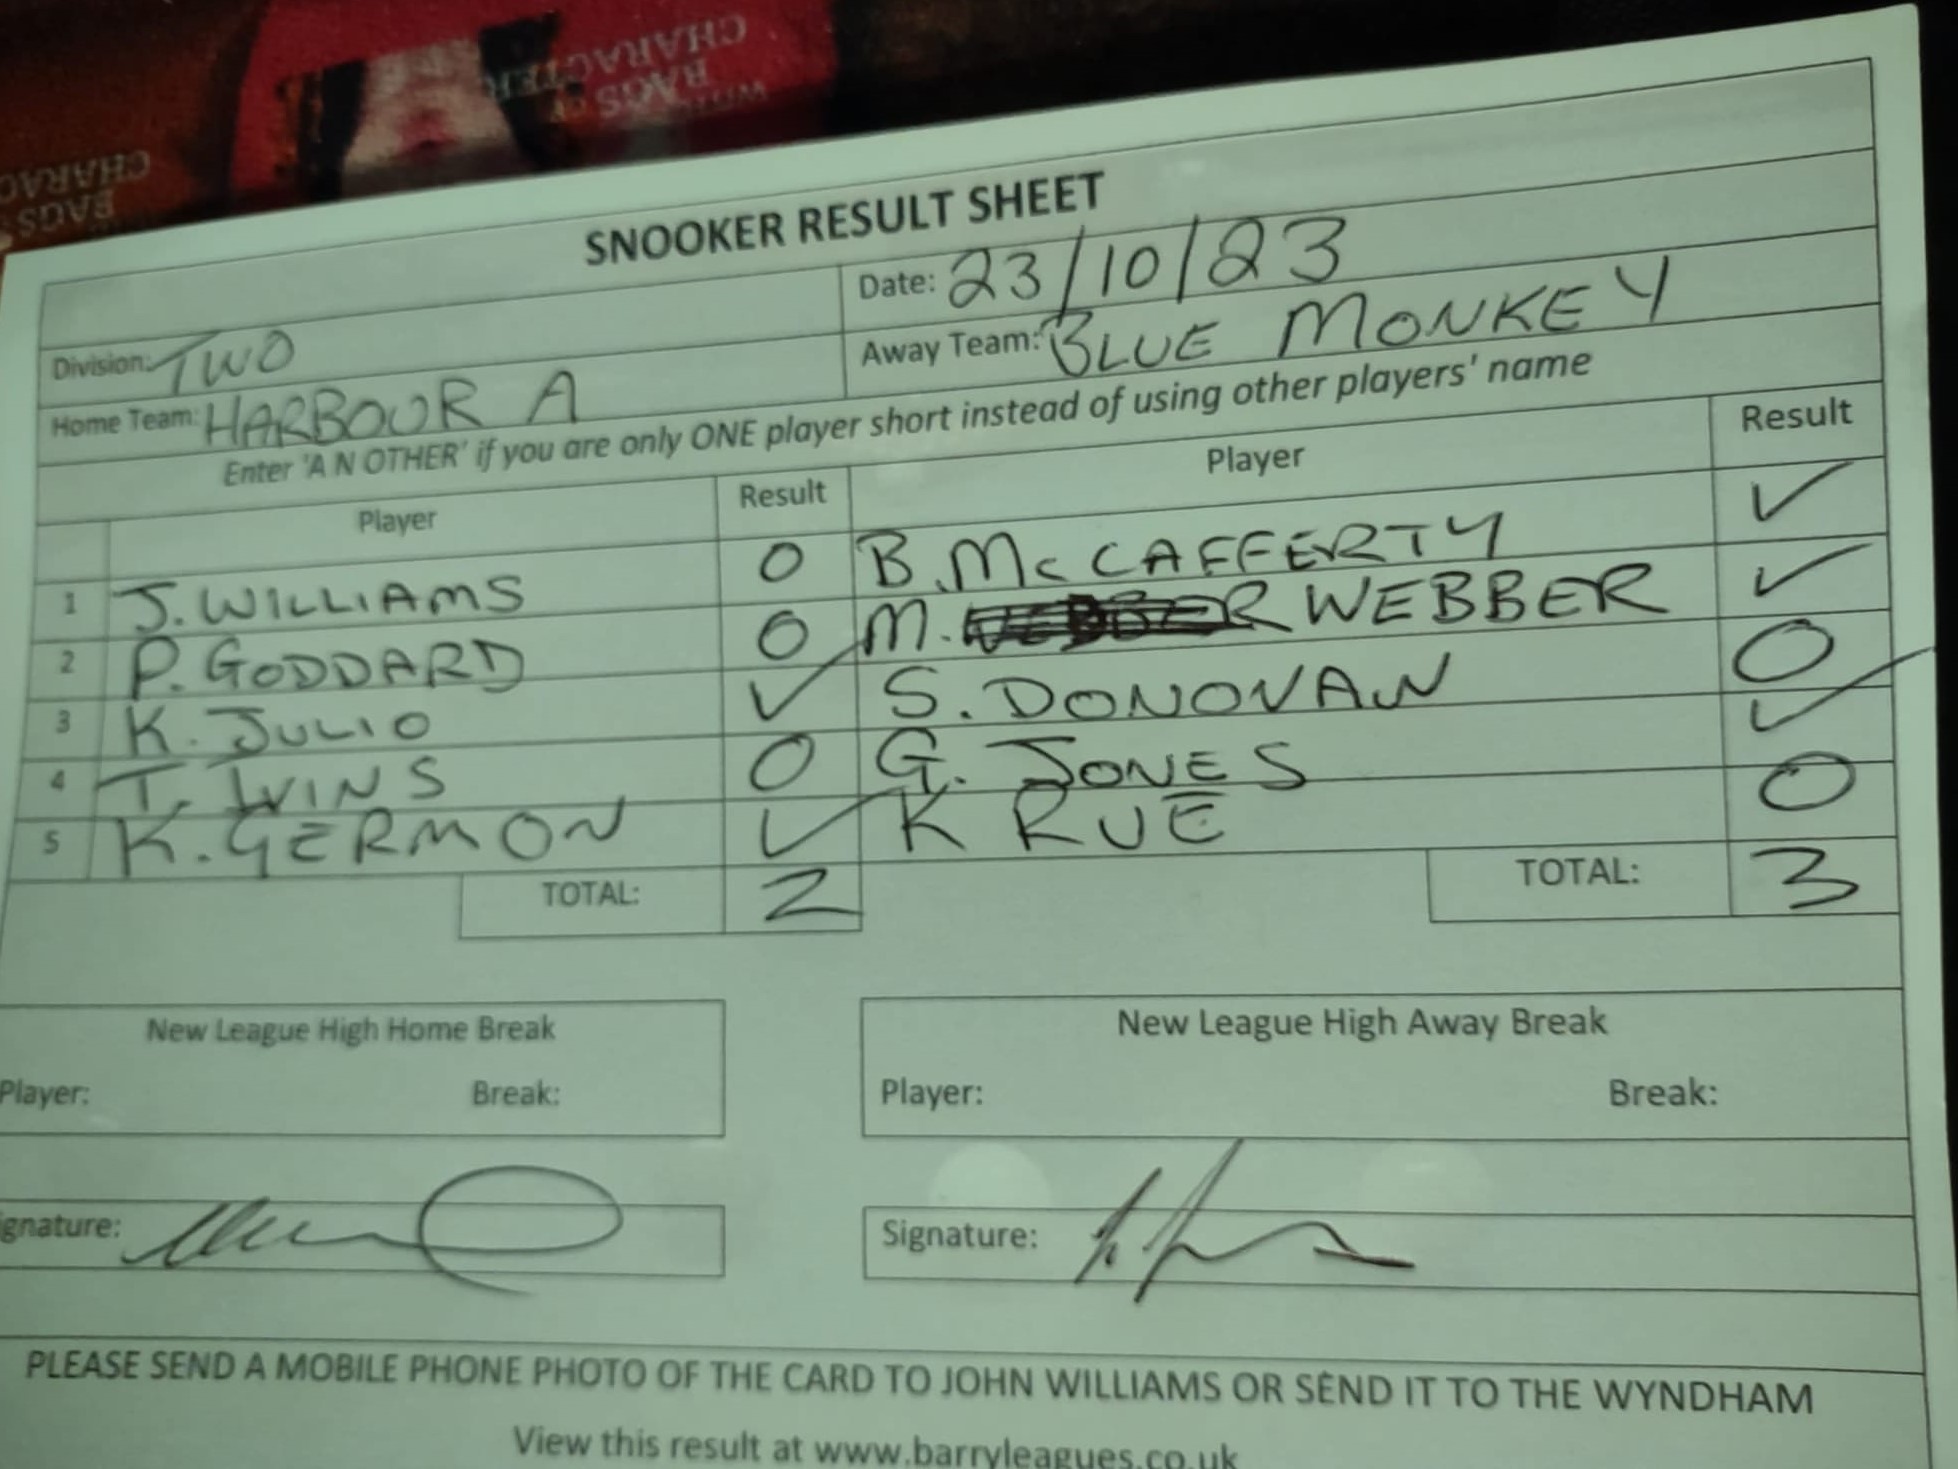 WITH
BAGS OF
CHARACTER
CHARAC
BAGS
SNOOKER RESULT SHEET
Date: 23/10/23
Division: TWO
Away Team: BLUE MONKEY
Home Team: HARBOUR A
Enter 'A N OTHER' if you are only ONE player short instead of using other players' name
Player Result Player Result
1 J. WILLIAMS 0 B. McCAFFERTY ✓
2 P. GODDARD 0 M. WEBBER WEBBER ✓
3 K. JULIO ✓ S. DONOVAN 0
4 T. WINS 0 G. JONES ✓
5 K. GERMON ✓ K RUE 0
TOTAL: 2 TOTAL: 3
New League High Home Break New League High Away Break
Player: Break: Player: Break:
ignature: Signature:
PLEASE SEND A MOBILE PHONE PHOTO OF THE CARD TO JOHN WILLIAMS OR SEND IT TO THE WYNDHAM
View this result at www.barryleagues.co.uk